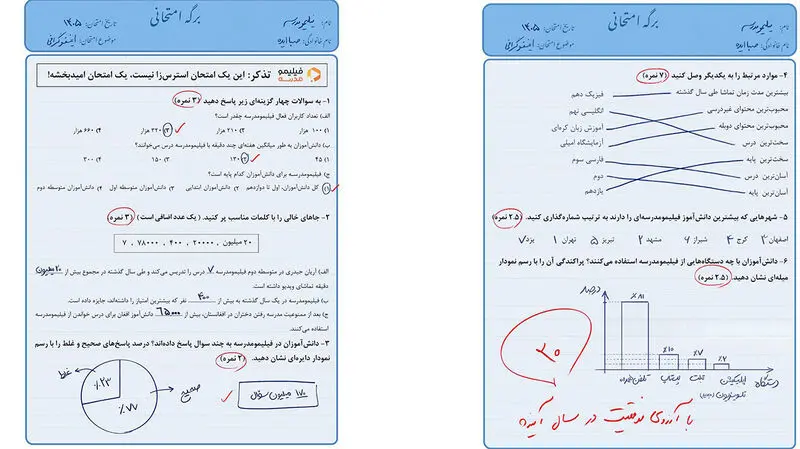 برگه امتحانی
نام: فیلیمو مدرسه
تاریخ امتحان: ۱۴۰۵
نام خانوادگی: صباایده
موضوع امتحان: اینفوگرافی
فیلیمو مدرسه
تذکر: این یک امتحان استرس‌زا نیست، یک امتحان امیدبخشه!
۱- به سوالات چهار گزینه‌ای زیر پاسخ دهید (۳ نمره)
الف) تعداد کاربران فعال فیلیمومدرسه چقدر است؟
۱) ۱۰۰ هزار ۲) ۲۱۰ هزار ۳) ۳۲۰ هزار ۴) ۶۶۰ هزار
ب) دانش‌آموزان به طور میانگین هفته‌ای چند دقیقه با فیلیمومدرسه درس می‌خوانند؟
۱) ۴۵ ۲) ۱۳۰ ۳) ۱۵۰ ۴) ۳۰۰
ج) فیلیمومدرسه برای دانش‌آموزان کدام پایه است؟
۱) کل دانش‌آموزان، اول تا دوازدهم ۲) دانش‌آموزان ابتدایی ۳) دانش‌آموزان متوسطه اول ۴) دانش‌آموزان متوسطه دوم
۲- جاهای خالی را با کلمات مناسب پر کنید. (یک عدد اضافی است) (۳ نمره)
۲۰ میلیون ، ۲۰۰۰۰ ، ۴۰۰ ، ۷۸۰۰۰ ، ۷
الف) آریان حیدری در متوسطه دوم فیلیمومدرسه ۷ درس را تدریس می‌کند و طی سال گذشته در مجموع بیش از ۲۰ میلیون
دقیقه تماشای ویدیو داشته است.
ب) فیلیمومدرسه در یک سال گذشته به بیش از ۴۰۰ نفر که بیشترین امتیاز را داشته‌اند، جایزه داده است.
ج) بعد از ممنوعیت مدرسه رفتن دختران در افغانستان، بیش از دانش‌آموز افغان برای درس خواندن از فیلیمومدرسه
استفاده می‌کنند.
۳- دانش‌آموزان در فیلیمومدرسه به چند سوال پاسخ داده‌اند؟ درصد پاسخ‌های صحیح و غلط را با رسم
نمودار دایره‌ای نشان دهید. (۲ نمره)
غلط
٪۲۳
٪۷۷
صحیح
۱۷۰ میلیون سؤال
برگه امتحانی
نام: فیلیمو مدرسه
تاریخ امتحان: ۱۴۰۵
نام خانوادگی: صباایده
موضوع امتحان: اینفوگرافی
۴- موارد مرتبط را به یکدیگر وصل کنید (۷ نمره)
بیشترین مدت زمان تماشا طی سال گذشته فیزیک دهم
محبوب‌ترین محتوای غیردرسی انگلیسی نهم
محبوب‌ترین محتوای دوبله آموزش زبان کره‌ای
سخت‌ترین درس آزمایشگاه امیلی
سخت‌ترین پایه فارسی سوم
آسان‌ترین درس دوم
آسان‌ترین پایه یازدهم
۵- شهرهایی که بیشترین دانش‌آموز فیلیمومدرسه‌ای را دارند به ترتیب شماره‌گذاری کنید. (۲.۵ نمره)
اصفهان ۳ کرج ۴ شیراز ۶ مشهد ۲ تبریز ۵ تهران ۱ یزد ۷
۶- دانش‌آموزان با چه دستگاه‌هایی از فیلیمومدرسه استفاده می‌کنند؟ پراکندگی آن را با رسم نمودار
میله‌ای نشان دهید. (۲.۵ نمره)
درصد
٪۸۱
٪۱۰
٪۷
٪۲
تلفن همراه لپتاپ تبلت اپلیکیشن تلویزیون دستگاه
۲۰
با آرزوی موفقیت در سال آینده